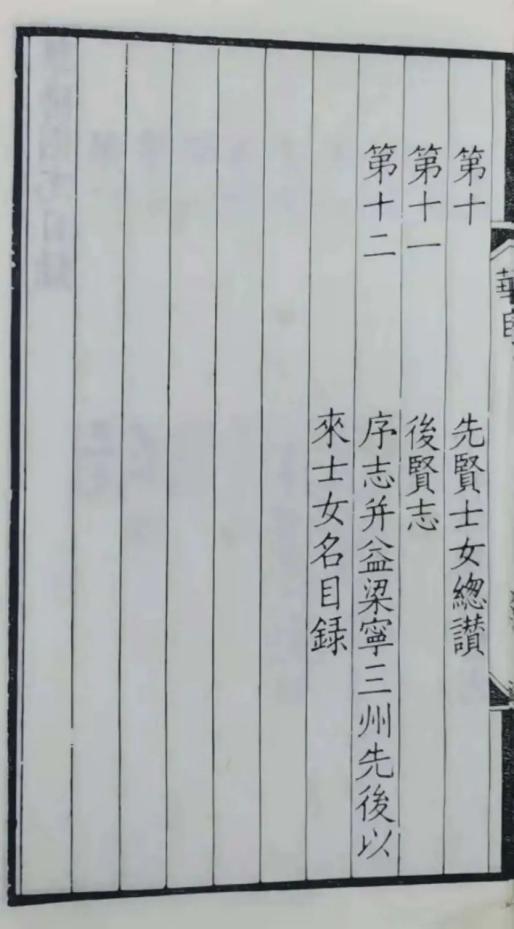 第十 先賢士女緫讃
第十一 後賢志
第十二 序志并益梁寧三州先後以
來士女名目録
華